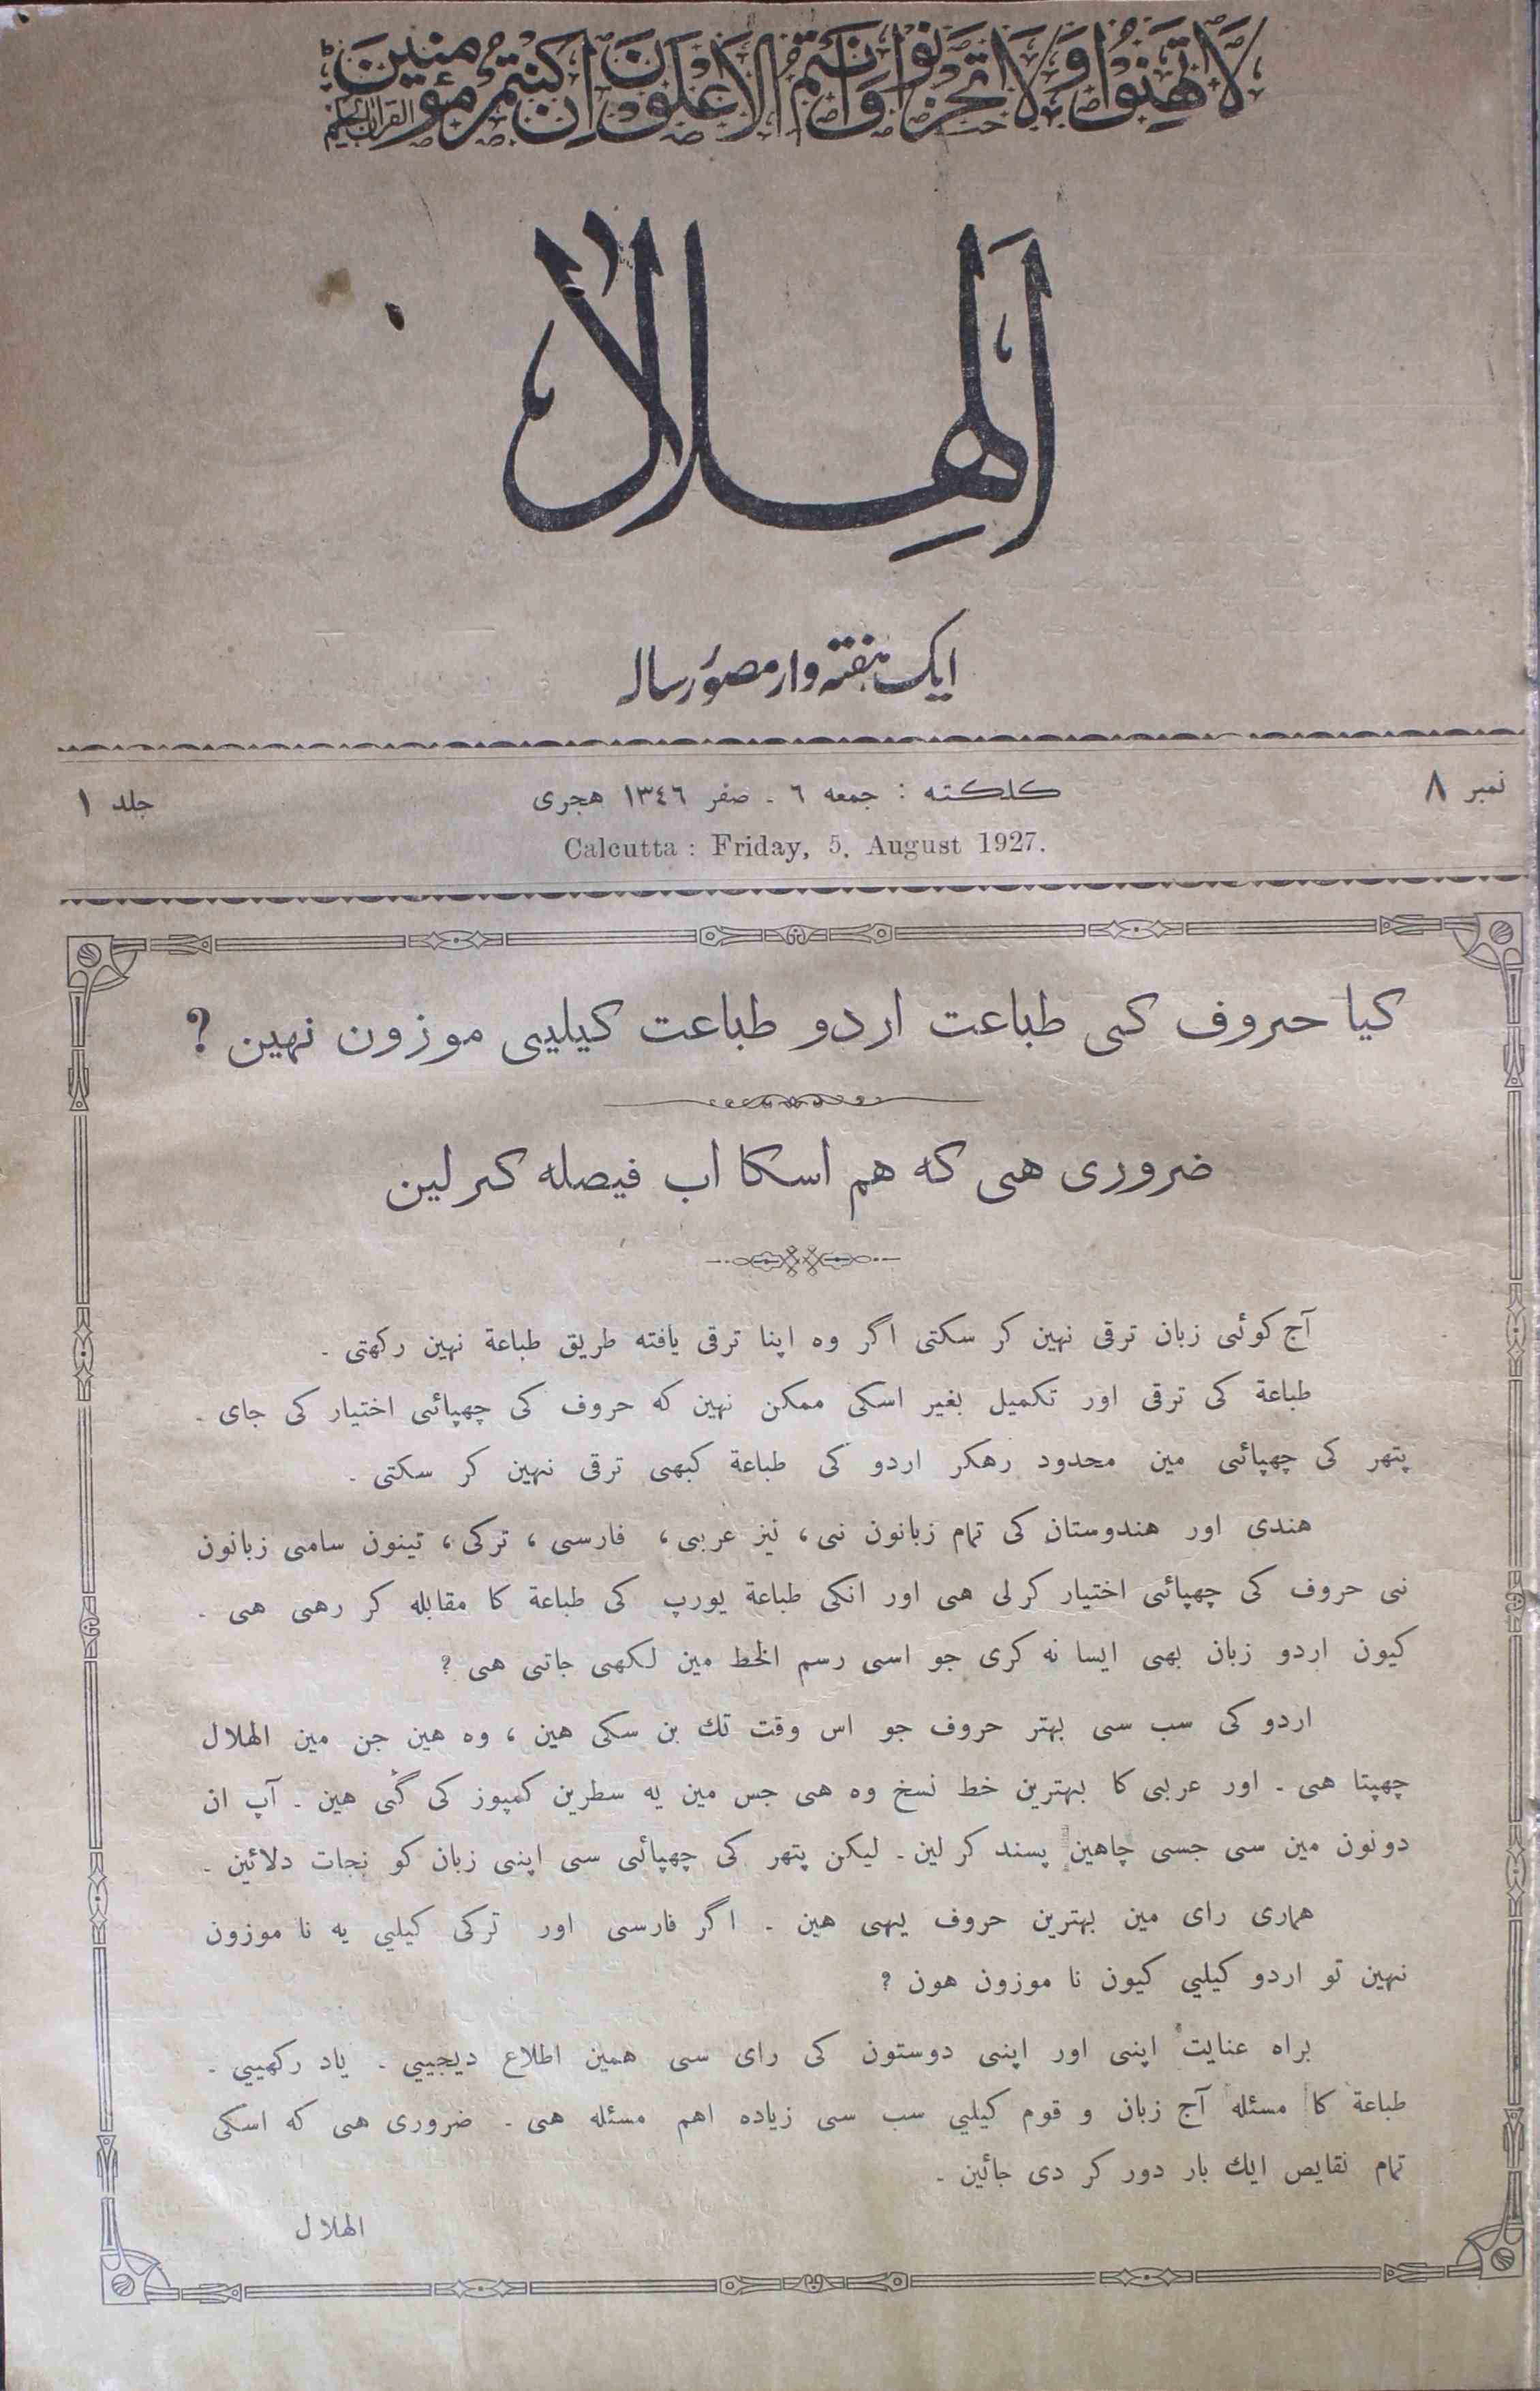 لَا تَهِنُوا وَلَا تَحْزَنُوا وَأَنْتُمُ الْأَعْلَوْنَ إِنْ كُنْتُمْ مُؤْمِنِينَ
القرآن الحكيم
الهلال
ایک ہفتہ وار مصور رسالہ
نمبر ٨
كلكته : جمعه ٦ ـ صفر ١٣٤٦ هجرى
جلد ١
Calcutta : Friday, 5, August 1927.
کیا حروف کی طباعت اردو طباعت کیلیی موزون نہین ?
ضروری هی که هم اسکا اب فیصله کر لین
آج کوئی زبان ترقی نہین کر سکتی اگر وه اپنا ترقی یافته طریق طباعة نہین رکهتی ـ
طباعة کی ترقی اور تکمیل بغیر اسکی ممکن نہین که حروف کی چهپائی اختیار کی جای ـ
پتهر کی چهپائی مین محدود رهکر اردو کی طباعة کبهی ترقی نہین کر سکتی ـ
هندی اور هندوستان کی تمام زبانون نی ، نیز عربی ، فارسی ، ترکی ، تینون سامی زبانون
نی حروف کی چهپائی اختیار کر لی هی اور انکی طباعة یورپ کی طباعة کا مقابله کر رهی هی ـ
کیون اردو زبان بهی ایسا نه کری جو اسی رسم الخط مین لکهی جاتی هی ?
اردو کی سب سی بہتر حروف جو اس وقت تك بن سکی هین ، وه هین جن مین الهلال
چهپتا هی ـ اور عربی کا بہترین خط نسخ وه هی جس مین یه سطرین کمپوز کی گئی هین ـ آپ ان
دونون مین سی جسی چاهین پسند کر لین ـ لیکن پتهر کی چهپائی سی اپنی زبان کو نجات دلائین ـ
هماری رای مین بہترین حروف یہی هین ـ اگر فارسی اور ترکی کیلیی یه نا موزون
نہین تو اردو کیلیی کیون نا موزون هون ?
براه عنایت اپنی اور اپنی دوستون کی رای سی همین اطلاع دیجیی ـ یاد رکهیی ـ
طباعة کا مسئله آج زبان و قوم کیلیی سب سی زیاده اهم مسئله هی ـ ضروری هی که اسکی
تمام نقایص ایك بار دور کر دی جائین ـ
الهلال